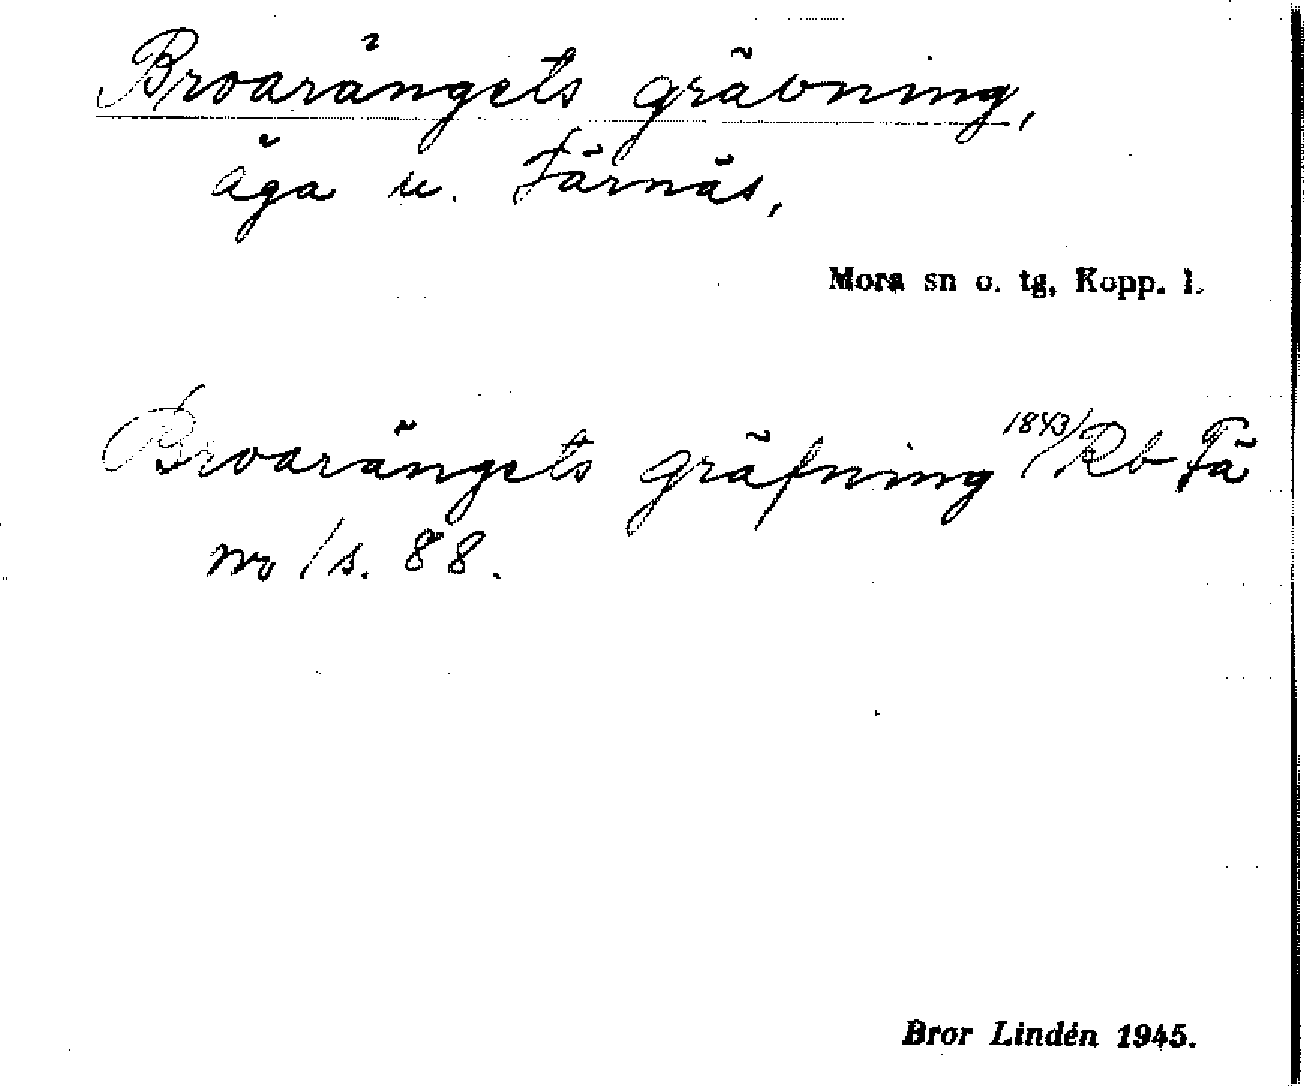 Broarängets gräbning,
äga u. Färnäs,
Mora sn o. tg, Kopp. l.
Broarängets gräfning 1843/Rb Fä
nro 1 s. 88.
Bror Lindén 1945.